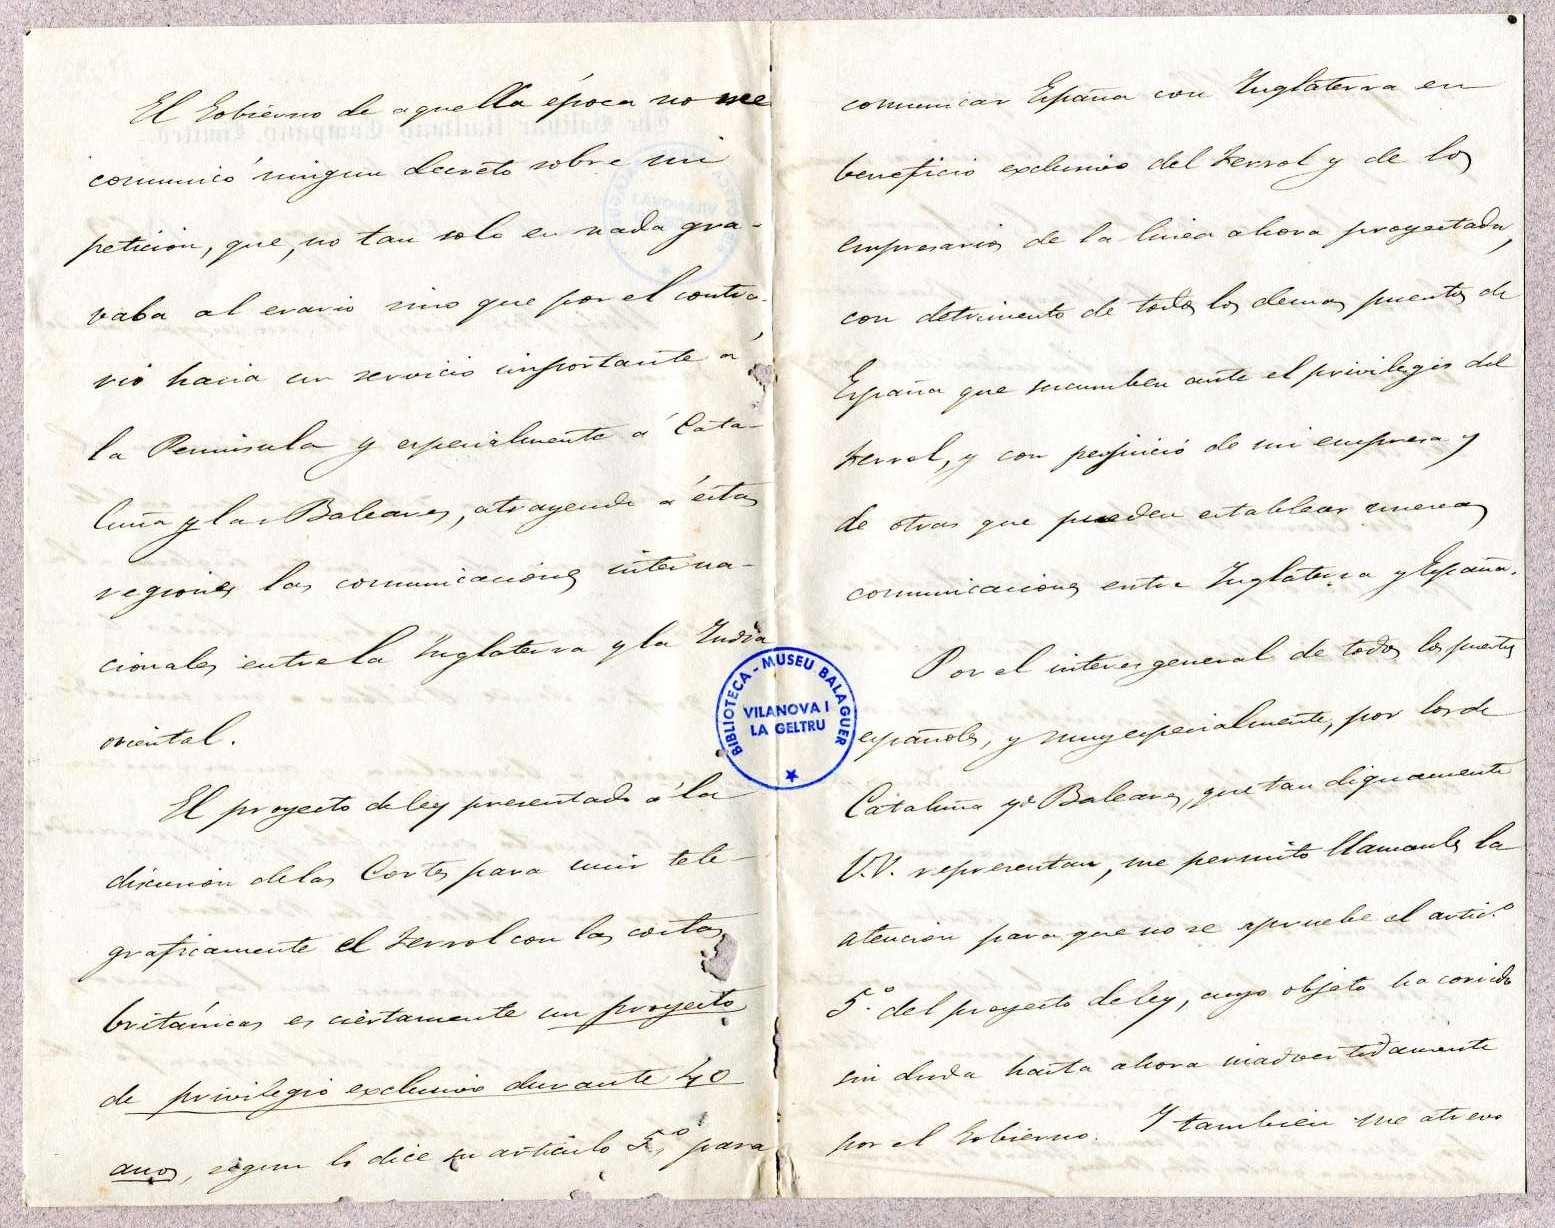 El Gobierno de aquella época no me
comunicó ningun decreto sobre mi
peticion, que, no tan solo en nada gra-
vaba al erario sino que por el contra-
rio hacia un servicio importante á
la Peninsula y especialmente á Cata-
luña y las Baleares, atrayendo á éstas
regiones las comunicaciones interna-
cionales entre la Inglaterra y la India
oriental.
El proyecto de ley presentado á la
discusion de las Cortes para unir tele-
graficamente el Ferrol con las costas
británicas es ciertamente un proyecto
de privilegio exclusivo durante 40
anos, segun lo dice su artículo 5º, para
comunicar España con Inglaterra en
beneficio exclusivo del Ferrol y de los
empresarios de la linea ahora proyectada,
con detrimento de todos los demas puertos de
España que sucumben ante el privilegio del
Ferrol, y con perjuicio de mi empresa y
de otras que pueden establecer nuevas
comunicaciones entre Inglaterra y España.
Por el interes general de todos los puertos
españoles, y muy especialmente, por los de
Cataluña y Baleares, que tan dignamente
V.V. representan, me permito llamarles la
atencion para que no se apruebe el artic.º
5.º del proyecto de ley, cuyo objeto ha corrido
sin duda hasta ahora inadvertidamente
por el Gobierno. Y tambien me atrevo
BIBLIOTECA - MUSEU BALAGUER
VILANOVA I
LA GELTRU